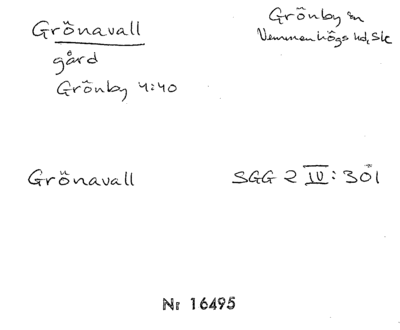 Grönavall
Grönby sn
Vemmenhögs hd, Sk
gård
Grönby 4:40
Grönavall
SGG 2 IV: 301
Nr 16495